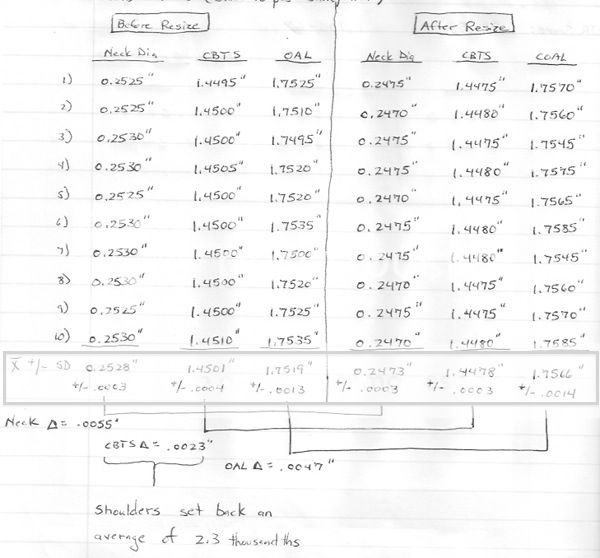 Before Resize After Resize
Neck Dia CBTS OAL Neck Dia CBTS COAL
1) 0.2525" 1.4495" 1.7525" 0.2475" 1.4475" 1.7570"
2) 0.2525" 1.4500" 1.7510" 0.2470" 1.4480" 1.7560"
3) 0.2530" 1.4500" 1.7495" 0.2475" 1.4475" 1.7545"
4) 0.2530" 1.4505" 1.7520" 0.2475" 1.4480" 1.7575"
5) 0.2525" 1.4500" 1.7520" 0.2470" 1.4475" 1.7565"
6) 0.2530" 1.4500" 1.7535" 0.2475" 1.4480" 1.7585"
7) 0.2530" 1.4500" 1.7500" 0.2475" 1.4480" 1.7545"
8) 0.2530" 1.4500" 1.7520" 0.2470" 1.4475" 1.7560"
9) 0.2525" 1.4500" 1.7525" 0.2475" 1.4475" 1.7570"
10) 0.2530" 1.4510" 1.7535" 0.2470" 1.4480" 1.7585"
X̄ +/- SD 0.2528" 1.4501" 1.7519" 0.2473" 1.4478" 1.7566"
+/- .0003 +/- .0004 +/- .0013 +/- .0003 +/- .0003 +/- .0014
Neck Δ = .0055"
CBTS Δ = .0023"
OAL Δ = .0047"
Shoulders set back an
average of 2.3 thousandths